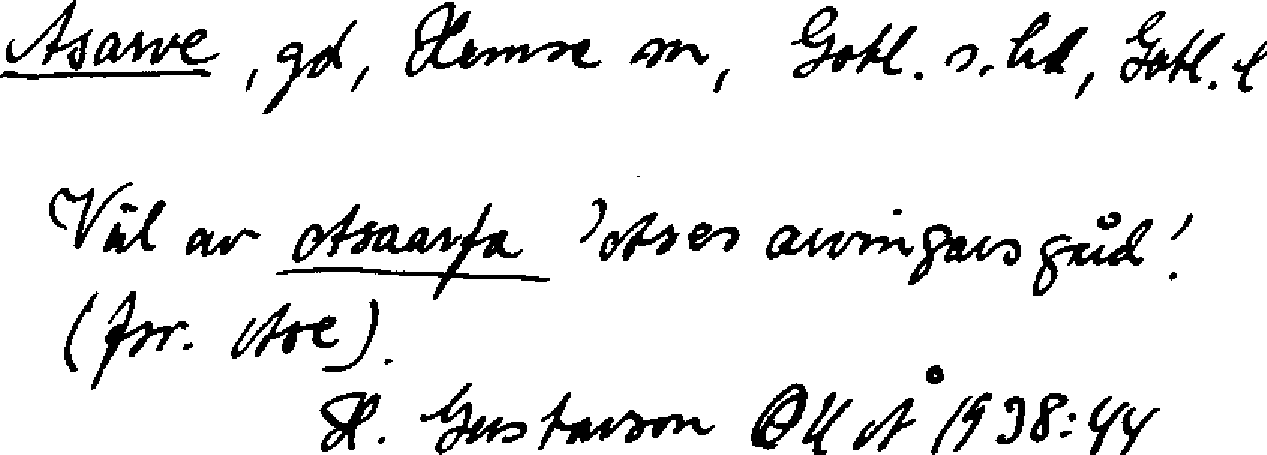 Asarve, gd, Hemse sn, Gotl. s. hd, Gotl. l
Väl av Asaarfa 'Ases arvingars gård'.
(fsv. Ase).
H. Gustavson OUÅ 1938:44